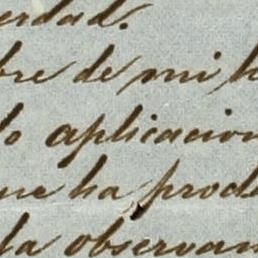 erdad.
bre de mi h
lo aplicacion
que ha prod
la observan